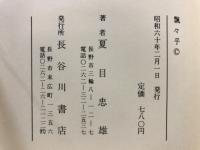 飄々乎©
昭和六十年二月一日 発行
定価 七八〇円
著者 夏目忠雄
長野市三輪八ー一二ー七
電話〇二六二ー三二ー二五二七
発行所 長谷川書店
長野市末広町一三五六
電話〇二六二ー二六ー二一二二㈹